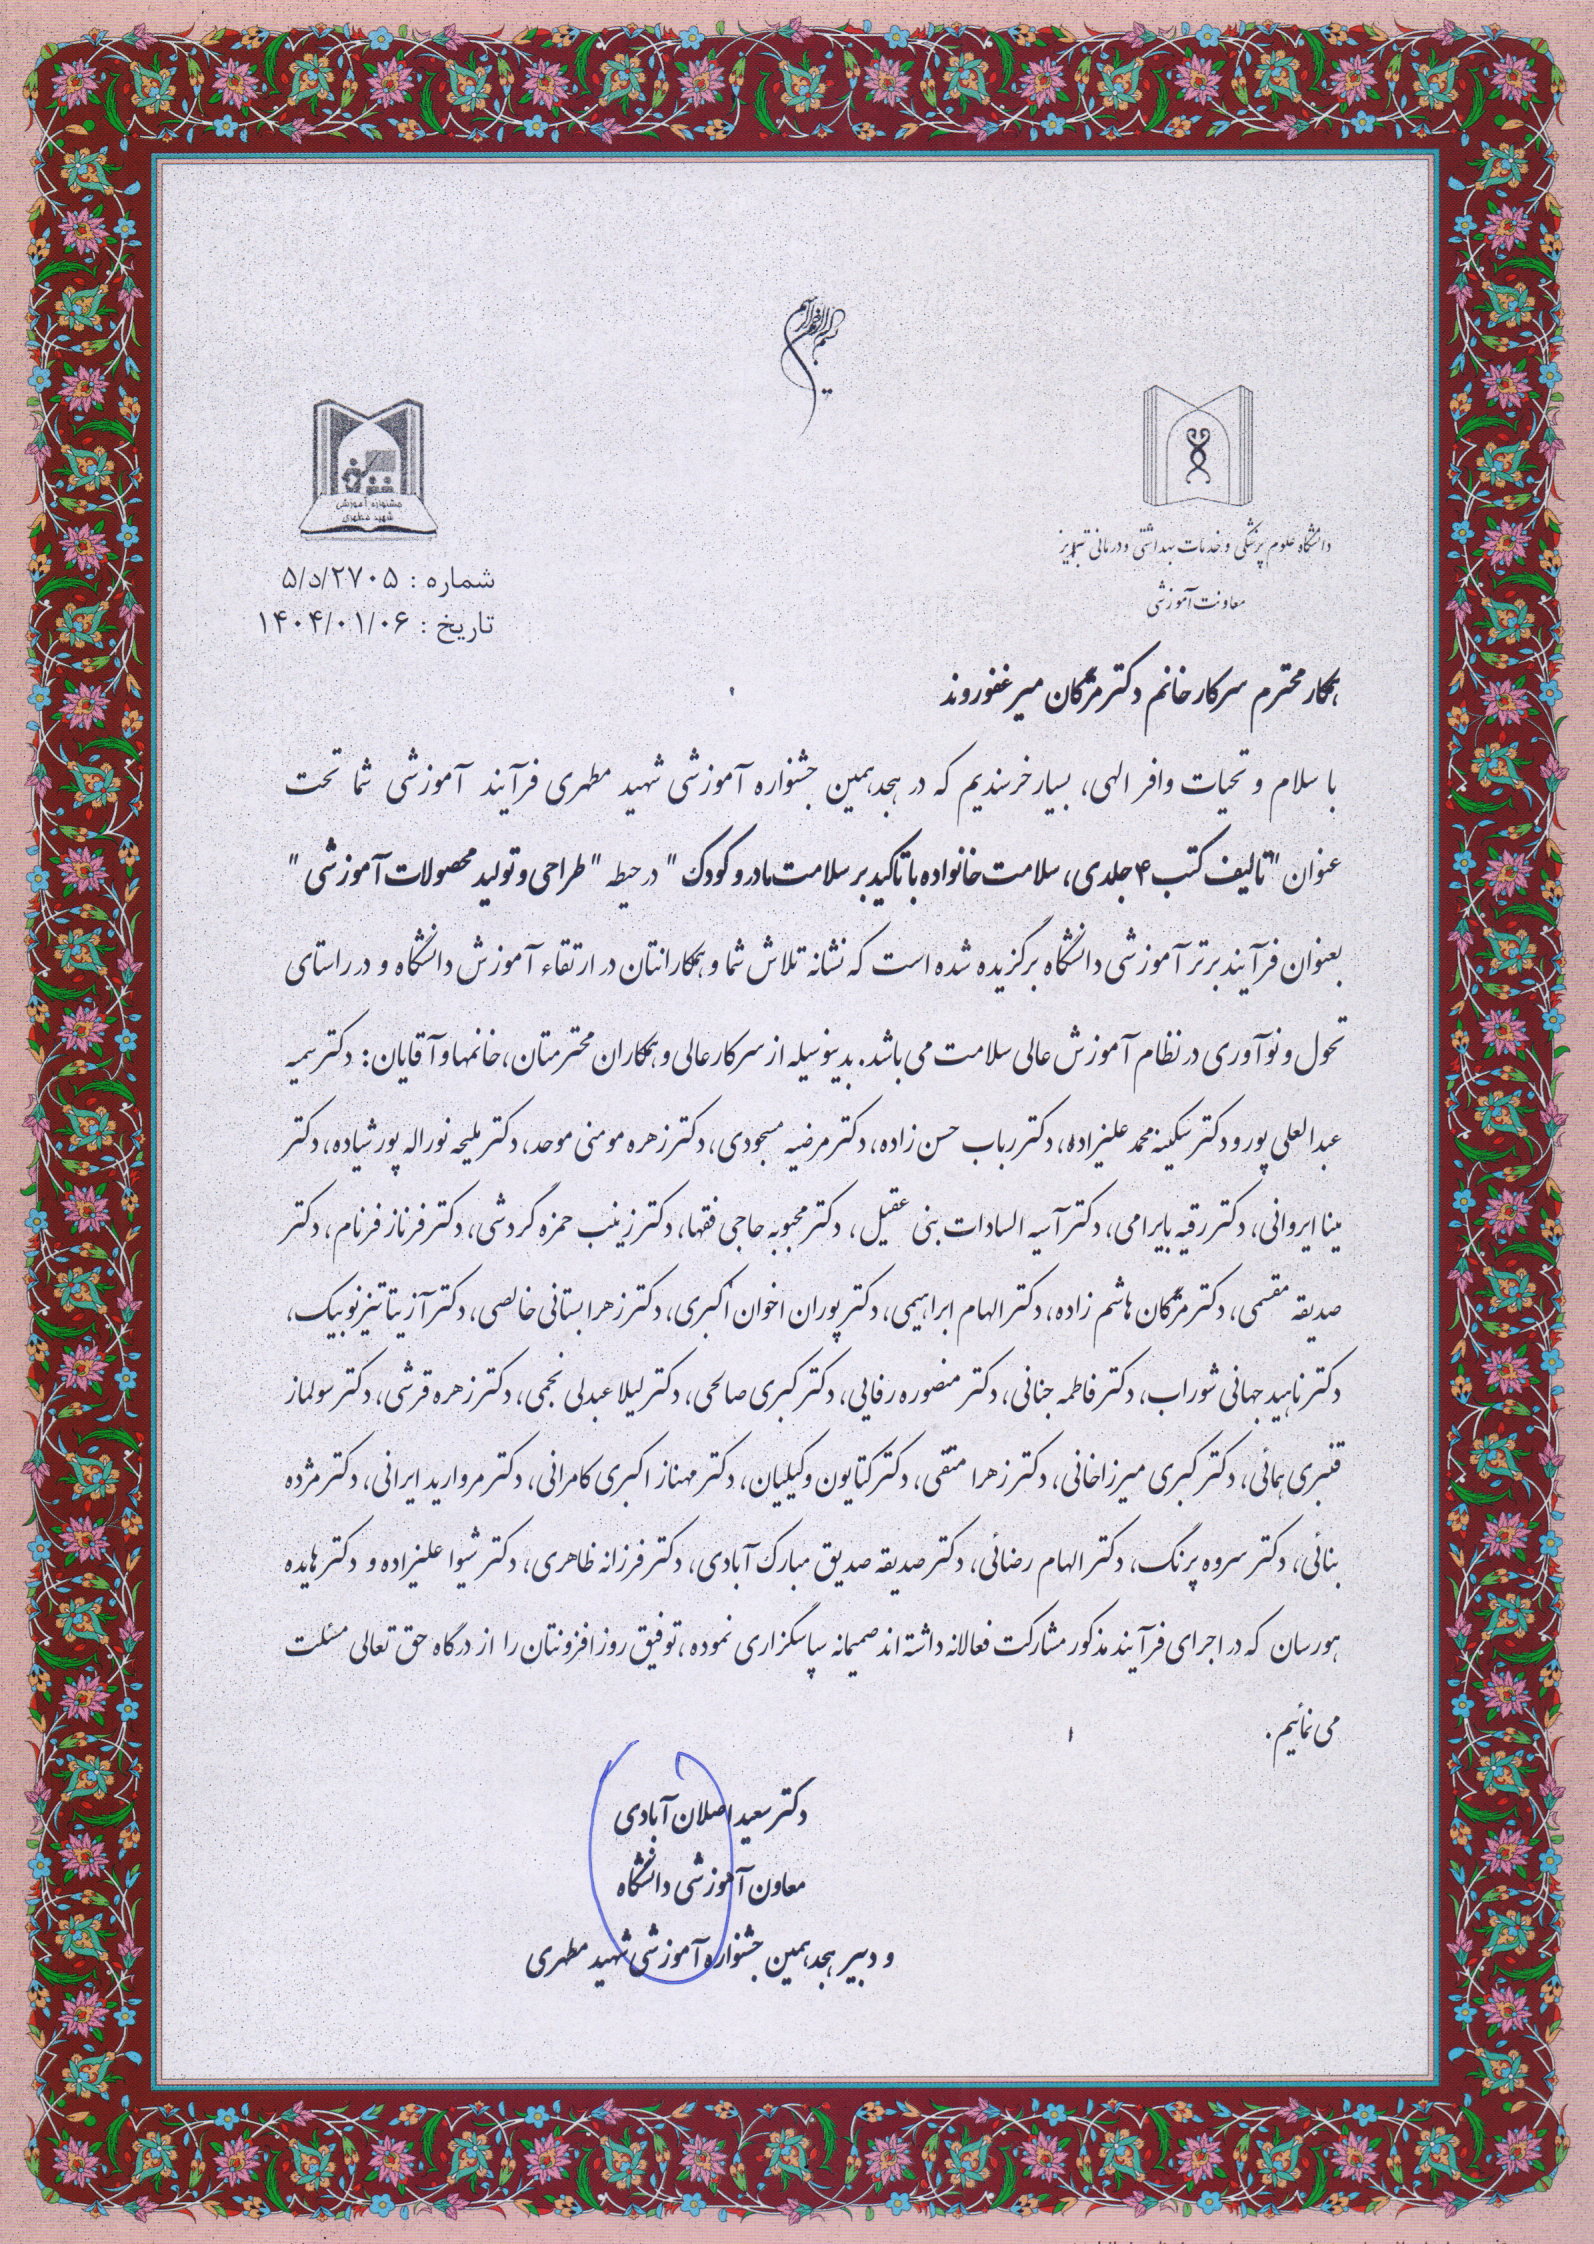 بسم الله الرحمن الرحیم
جشنواره آموزشی
شهید مطهری
دانشگاه علوم پزشکی و خدمات بهداشتی و درمانی تبریز
معاونت آموزشی
شماره : ۵/د/۲۷۰۵
تاریخ : ۱۴۰۴/۰۱/۰۶
همکار محترم سرکار خانم دکتر مژگان میرغفوروند
با سلام و تحیات وافر الهی، بسیار خرسندیم که در هجدهمین جشنواره آموزشی شهید مطهری فرآیند آموزشی شما تحت
عنوان "تالیف کتب ۴ جلدی، سلامت خانواده با تاکید بر سلامت مادر و کودک" در حیطه "طراحی و تولید محصولات آموزشی"
بعنوان فرآیند برتر آموزشی دانشگاه برگزیده شده است که نشانه تلاش شما و همکارانتان در ارتقاء آموزش دانشگاه و در راستای
تحول و نوآوری در نظام آموزش عالی سلامت می باشد. بدینوسیله از سرکار عالی و همکاران محترمتان، خانمها و آقایان: دکتر سمیه
عبدالعلی پور و دکتر سکینه محمد علیزاده، دکتر رباب حسن زاده، دکتر مرضیه مسجودی، دکتر زهره مومنی موحد، دکتر ملیحه نوراله پور شیاده، دکتر
مینا ایروانی، دکتر رقیه بایرامی، دکتر آسیه السادات بنی عقیل، دکتر محبوبه حاجی فقها، دکتر زینب حمزه گردشی، دکتر فرناز فرنام، دکتر
صدیقه مقسمی، دکتر مژگان هاشم زاده، دکتر الهام ابراهیمی، دکتر پوران اخوان اکبری، دکتر زهرا بستانی خالصی، دکتر آزیتا تیزنوبیک،
دکتر ناهید جهانی شوراب، دکتر فاطمه جنانی، دکتر منصوره رفایی، دکتر کبری صالحی، دکتر لیلا عبدلی نجمی، دکتر زهره قرشی، دکتر سولماز
قنبری همائی، دکتر کبری میرزاخانی، دکتر زهرا متقی، دکتر کتایون وکیلیان، دکتر مهناز اکبری کامرانی، دکتر مروارید ایرانی، دکتر مژده
بنائی، دکتر سروه پرنگ، دکتر الهام رضائی، دکتر صدیقه صدیق مبارک آبادی، دکتر فرزانه ظاهری، دکتر شیوا علیزاده و دکتر هایده
هورسان که در اجرای فرآیند مذکور مشارکت فعالانه داشته اند صمیمانه سپاسگزاری نموده، توفیق روزافزونتان را از درگاه حق تعالی مسئلت
می نمائیم.
دکتر سعید اصلان آبادی
معاون آموزشی دانشگاه
و دبیر هجدهمین جشنواره آموزشی شهید مطهری